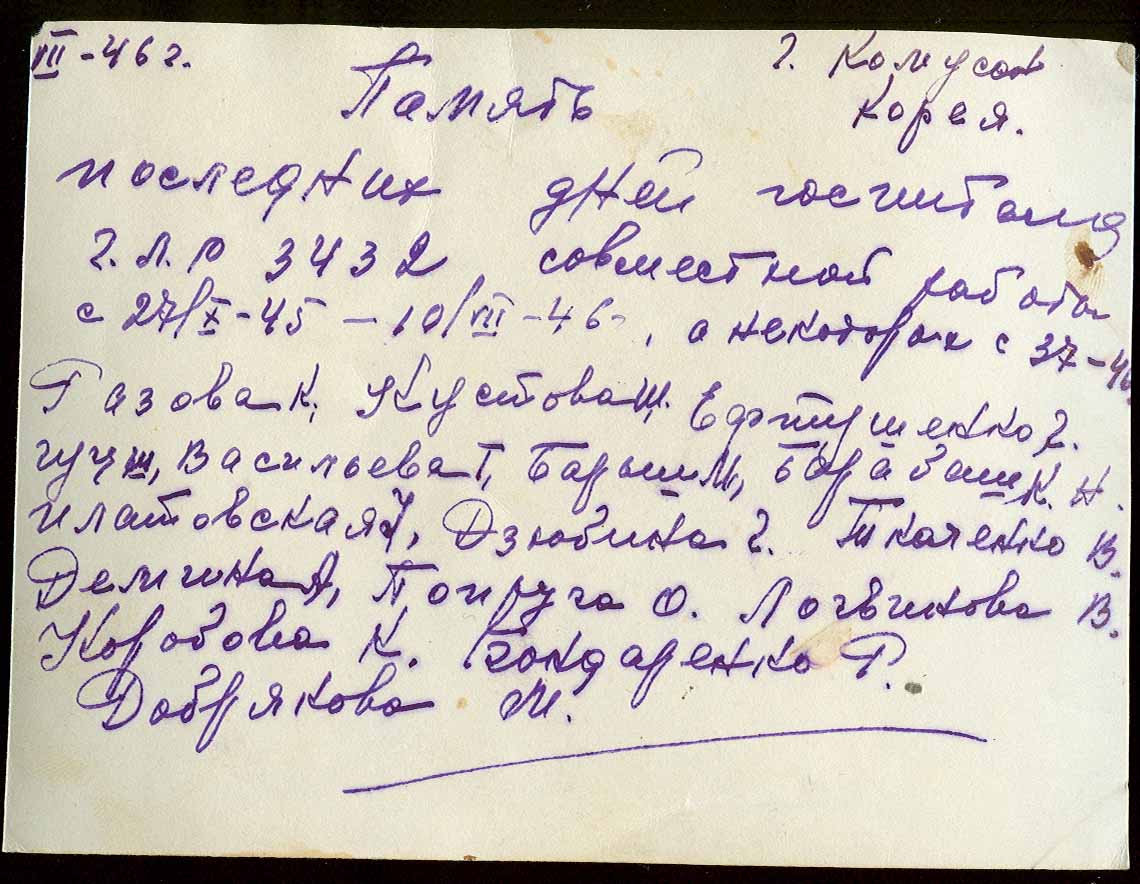 III-46 г. г. Комусан
Корея.
Память
последних дней госпиталя
г.л.р 3432 совместной работы
с 27/X-45 — 10/VII-46, а некоторых с 37-46
Газова К, Кустова Ш. Евтушенко г.
Васильева Т, Барыш М, Барабаш К. Н.
илатовская, Дзюбина г. Ткаченко В.
Демина А, Попруга О. Логвинова В.
Коробова К. Бондаренко Г.
Добрякова М.